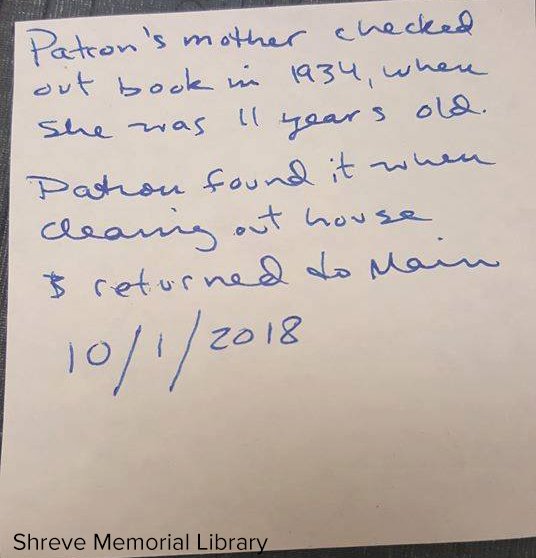 Patron's mother checked
out book in 1934, when
she was 11 years old.
Patron found it when
cleaning out house
& returned to Main
10/1/2018
Shreve Memorial Library